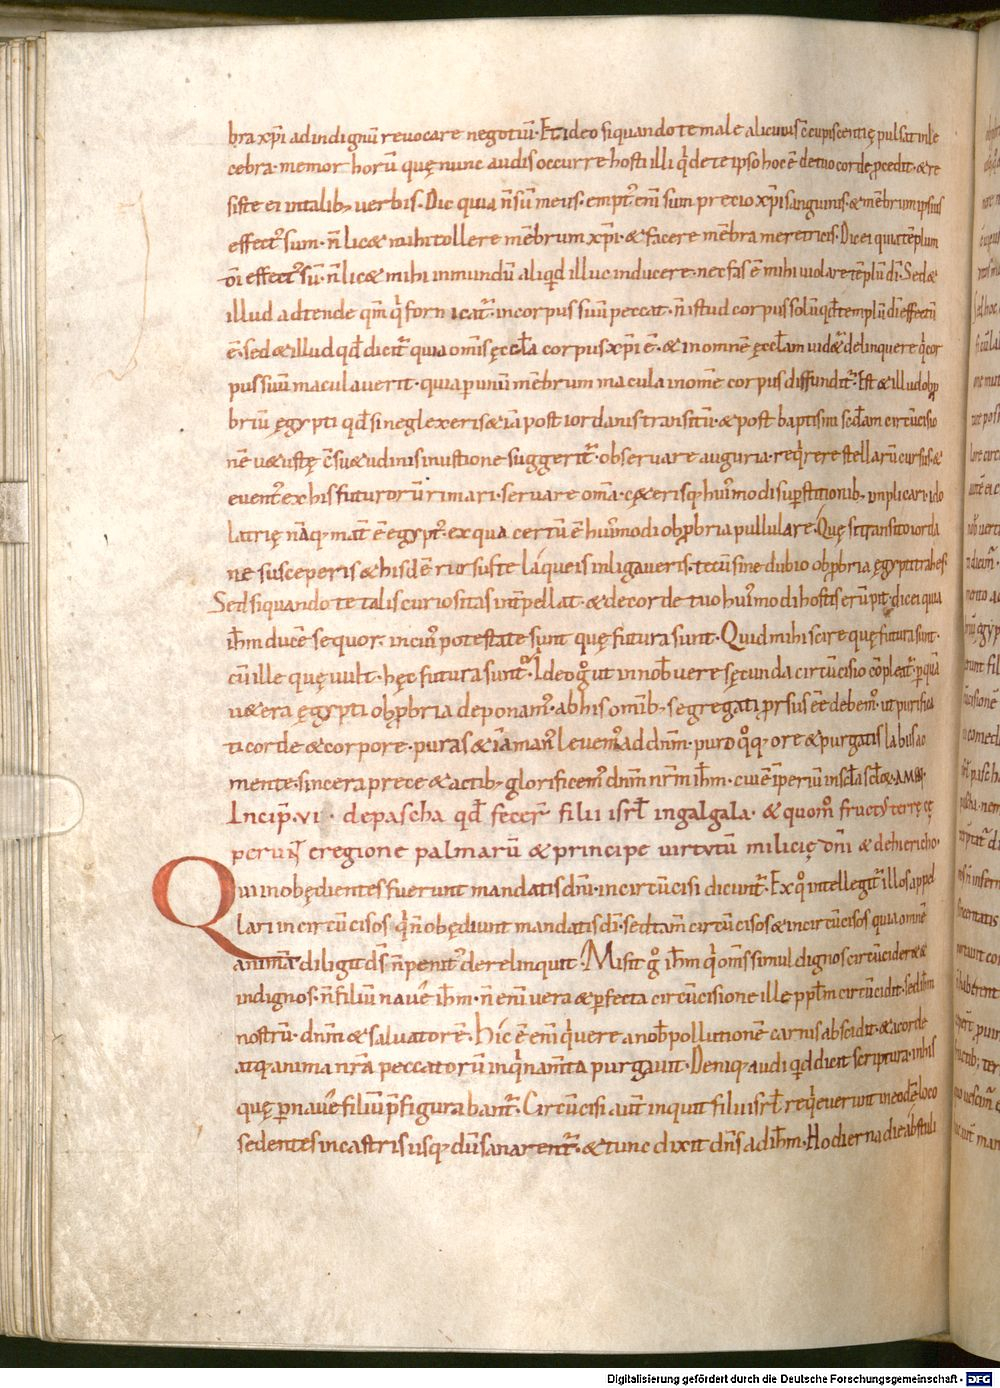 bra xp̄i ad indignū revocare negotiū. Et ideo si quando te male alicuius c̄cupiscentię pulsat inle
cebra. memor horū quę nunc audis occurre hosti illi q̇ de te ipso hoc ē de tuo corde p̱cedit. & re
siste ei in talib; verbis. Dic quia n̄ sū meus. empt᾽ eni sum precio xp̄i sanguinis. & mēbrum ipsius
effect᾽ sum. n̄ lic& mihi tollere mēbrum xp̄i. & facere mēbra meretricis. Dic ei quia tēplum
effect᾽ sū. n̄ lic& mihi inmundū aliqd̄ illuc inducere. nec fas ē mihi violare tēplū dī. Sed &
illud adtende qm̄ q̇ fornicat᾽. in corpus suū peccat. n̄ istud corpus solū qd̄ templū dī effectū
ē. sed & illud qd̄ dicit᾽ quia om̄is ęccl̄a corpus xp̄i ē. & in omnē ęccl̄am vid&᾽ delinquere q̇ cor
pus suū maculaverit. quia p̱ unū mēbrum macula in om̄e corpus diffundit᾽. Est & illud obp̱
briū ęgypti qd̄ si neglexeris & iā post iordanis transitū. & post baptismi scd̄am circūcisio
nē v&ustę c̄su&udinis inustione suggerit᾽. observare auguria. req̇rere stellarū cursus. &
event᾽ ex his futurorū rimari. servare om̄a. c&erisq; hui᾽modi sup̱stitionib; implicari. ido
latrię nāq; mat̄ ē egypt᾽. ex qua certū ē hui᾽modi obp̱bria pullulare. Quę si transito iorda
ne susceperis & hisdē rursus te laqueis inligaveris. tecū sine dubio obp̱bria ęgypti trahes.
Sed si quando te talis curiositas int̄pellat. & de corde tuo hui᾽modi hostis erūpit. dic ei quia
ih̄m ducē sequor. in cui᾽ potestate sunt quę futura sunt. Quid mihi scire quę futura sunt.
cū ille quę vult. hęc futura sunt. Ideo gͦ ut in nob̄ vere sęcunda circūcisio cōpleat᾽. p̱ quā
v&era ęgypti obp̱bria deponam᾽. ab his omīb; segregati p̱rsus eē debem᾽. ut purifica
ti corde & corpore. puras & iā man᾽ levem᾽ ad dn̄m. puro qͦq; ore & purgatis labiis ac
mente. sincera prece & actib; glorificem᾽ dn̄m nr̄m ih̄m. cui ē īperiū in scl̄a scl̄o&. AMEN.
Incip̄. vi. de pascha qd̄ fecer̄ filii isrl̄ in galgala. & quom̄ fructū terrę ce
perunt̄ e regione palmarū & principe virtvtū milicię dn̄i & de hiericho.
Qui inobędientes fuerunt mandatis dn̄i. incircūcisi dicunt᾽. Ex qͦ intellegit᾽ illos appel
lari incircūcisos q̇ n̄ obędiunt mandatis dī. sed tam̄ circūcisos & incircūcisos quia omnē
animā diligit ds̄ n̄ penit᾽ derelinquit. Misit gͦ ih̄m q̇ om̄s simul dignos circūcider& &
indignos. n̄ filiū nave ih̄m. n̄ enī vera & p̱fecta circūcisione ille pp̄l̄m circūcidit. sed ih̄m
nostrū. dn̄m & salvatorē. Hic ē enī q̇ vere a nob̄ pollutionē carnis abscidit. & a corde
atq; anima nr̄a peccatorū inq̇namīta purgavit. Deniq; audi qd̄ dicit scriptura. in his
quę p̱ nave filiū p̄figurabant᾽. Circūcisi aut̄ inquit filii isrl̄ req̇everunt in eodē loco
sedentes in castris usq; dū sanarent᾽. & tunc dixit dn̄s ad ih̄m. Hodierna die abstuli
Digitalisierung gefördert durch die Deutsche Forschungsgemeinschaft - DFG